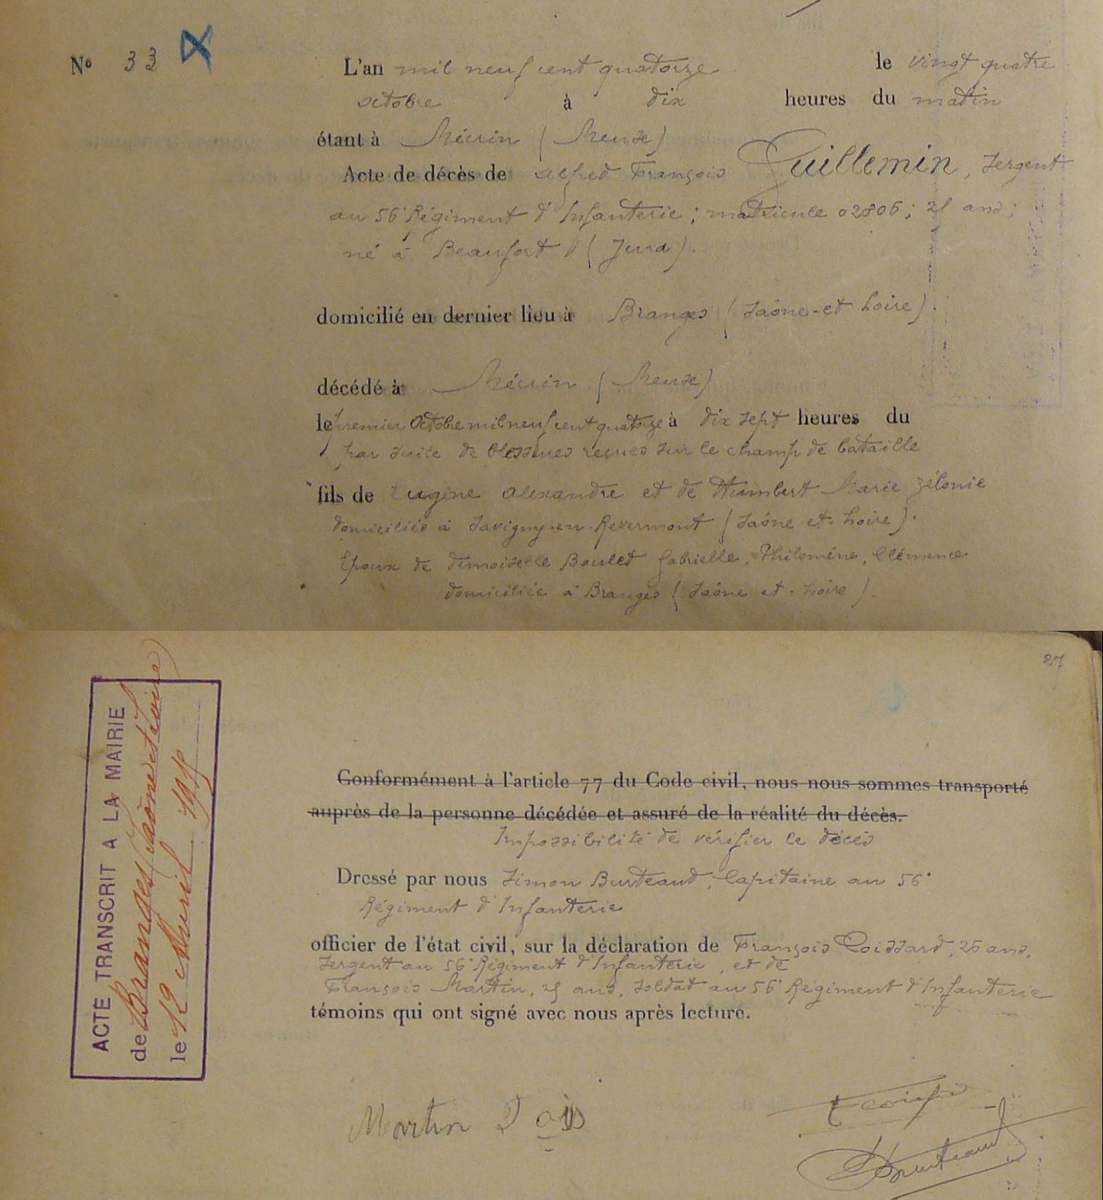 N° 33
L'an mil neuf cent quatorze le vingt quatre
octobre à dix heures du matin
étant à Mécrin (Meuse)
Acte de décès de Alfred François Guillemin, Sergent
au 56e Régiment d'Infanterie ; matricule 02806 ; 25 ans ;
né à Beaufort (Jura).
domicilié en dernier lieu à Branges (Saône-et Loire).
décédé à Mécrin (Meuse)
le premier Octobre mil neuf cent quatorze à dix sept heures du
par suite de blessures reçues sur le champ de bataille
fils de Eugène Alexandre et de Humbert Marie Zélonie
domiciliée à Savigny-en-Revermont (Saône-et-Loire).
Epoux de demoiselle Boulet Gabrielle, Philomène, Clémence
domiciliée à Branges (Saône et-Loire).
27
ACTE TRANSCRIT A LA MAIRIE
de Branges (Saône et Loire)
le 12 Avril 1915
Conformément à l'article 77 du Code civil, nous nous sommes transporté
auprès de la personne décédée et assuré de la réalité du décès.
Impossibilité de vérifier le décès
Dressé par nous Simon Burteaud, Capitaine au 56e
Régiment d'Infanterie
officier de l'état civil, sur la déclaration de François Coissard, 26 ans,
Sergent au 56e Régiment d'Infanterie, et de
François Martin, 25 ans, soldat au 56e Régiment d'Infanterie
témoins qui ont signé avec nous après lecture.
Martin
Burteaud